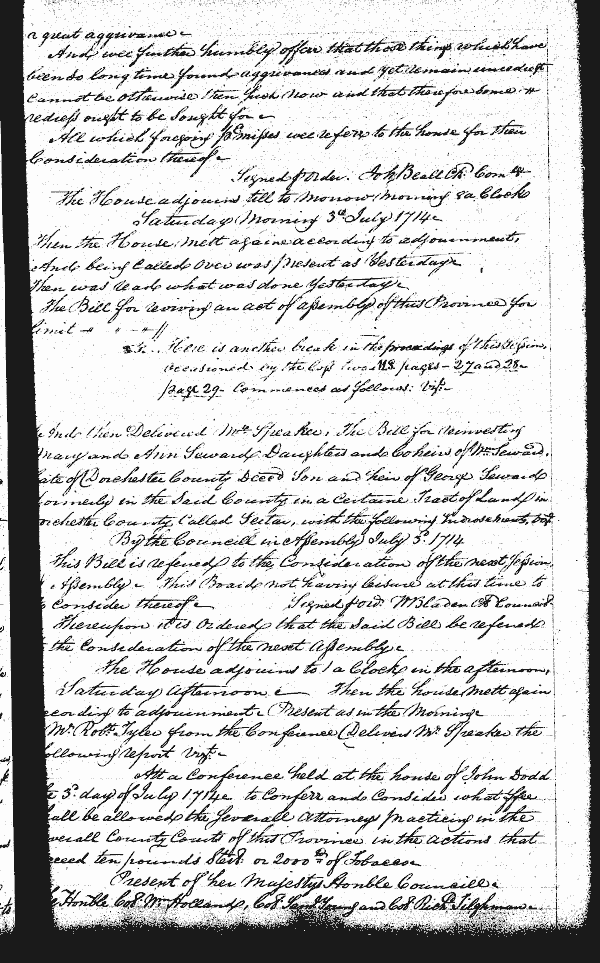 a great aggrivance
And wee further humbly offer that those things which have
been so long time found aggrivances and yet remain unredrest
Cannot be otherwise then such now and that therefore some
redress ought to be sought for
All which foregoing pmisses wee referr to the house for their
Consideration thereof
Signed p Order. Jos Beall Ck Com
The House adjourns till to Morrow Morning 8 a Clock
Saturday Morning 3d July 1714
Then the House mett againe according to adjournment,
And being Called Over was present as Yesterday
Then was read what was done Yesterday
The Bill for reviving an act of assembly of this Province for
limit
Here is another break in the proceedings of this Session,
occasioned by the loss of two MS pages - 27 and 28
page 29 - Commences as follows: Vizt.
And then Delivered Mr. Speaker. The Bill for reinvesting
Mary and Ann Seward Daughters and Coheirs of Wm. Seward,
late of Dorchester County Decd Son and heir of George Seward
formerly in the Said County in a Certaine Tract of Land in
orchester County Called Sectar, with the following Endorsements, vizt
By the Councill in Assembly July 3d. 1714
This Bill is referred to the Consideration of the next Session
Assembly. This Board not having leisure at this time to
consider thereof Signed p ord. W Bladen Cl Council
Thereupon it is Ordered that the Said Bill be referred
the Consideration of the next Assembly
The House adjourns to 1 a Clock in the afternoon,
Saturday afternoon. Then the house mett again
ccording to adjournment. Present as in the Morning
Mr. Robt. Tyler from the Conference Delivers Mr Speaker the
ollowing report Vizt
Att a Conference held at the house of John Dodd
3d. day of July 1714 to Conferr and Consider what ffee
hall be allowed the severall Attorneys practicing in the
everall County Courts of this Province in the actions that
xceed ten pounds Starl. or 2000 lb of Tobacco
Present of her Majestys Honble Councill
Honble Col. Wm. Holland, Col. Saml Young and Col. Richd. Tilghman